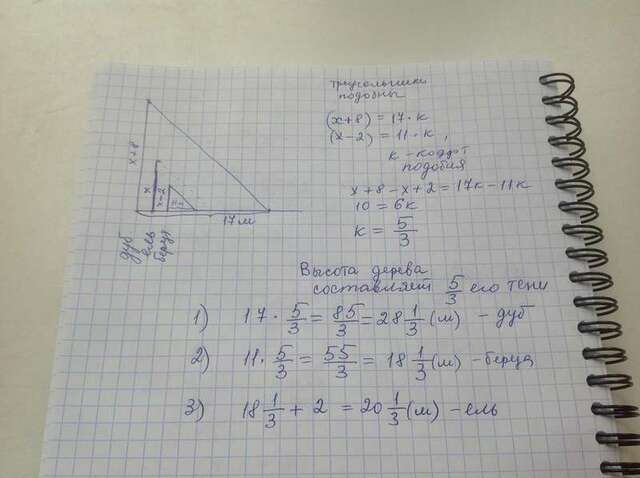 треугольники
подобны
(x+8) = 17·к
(x-2) = 11·к,
к - коэфф
подобия
x+8-x+2 = 17к-11к
10 = 6к
к = 5/3
x+8
x
x-2
17 м
дуб
ель
берца
Высота дерева
составляет 5/3 его тени
1) 17·5/3 = 85/3 = 28 1/3 (м) - дуб
2) 11·5/3 = 55/3 = 18 1/3 (м) - берца
3) 18 1/3 + 2 = 20 1/3 (м) - ель